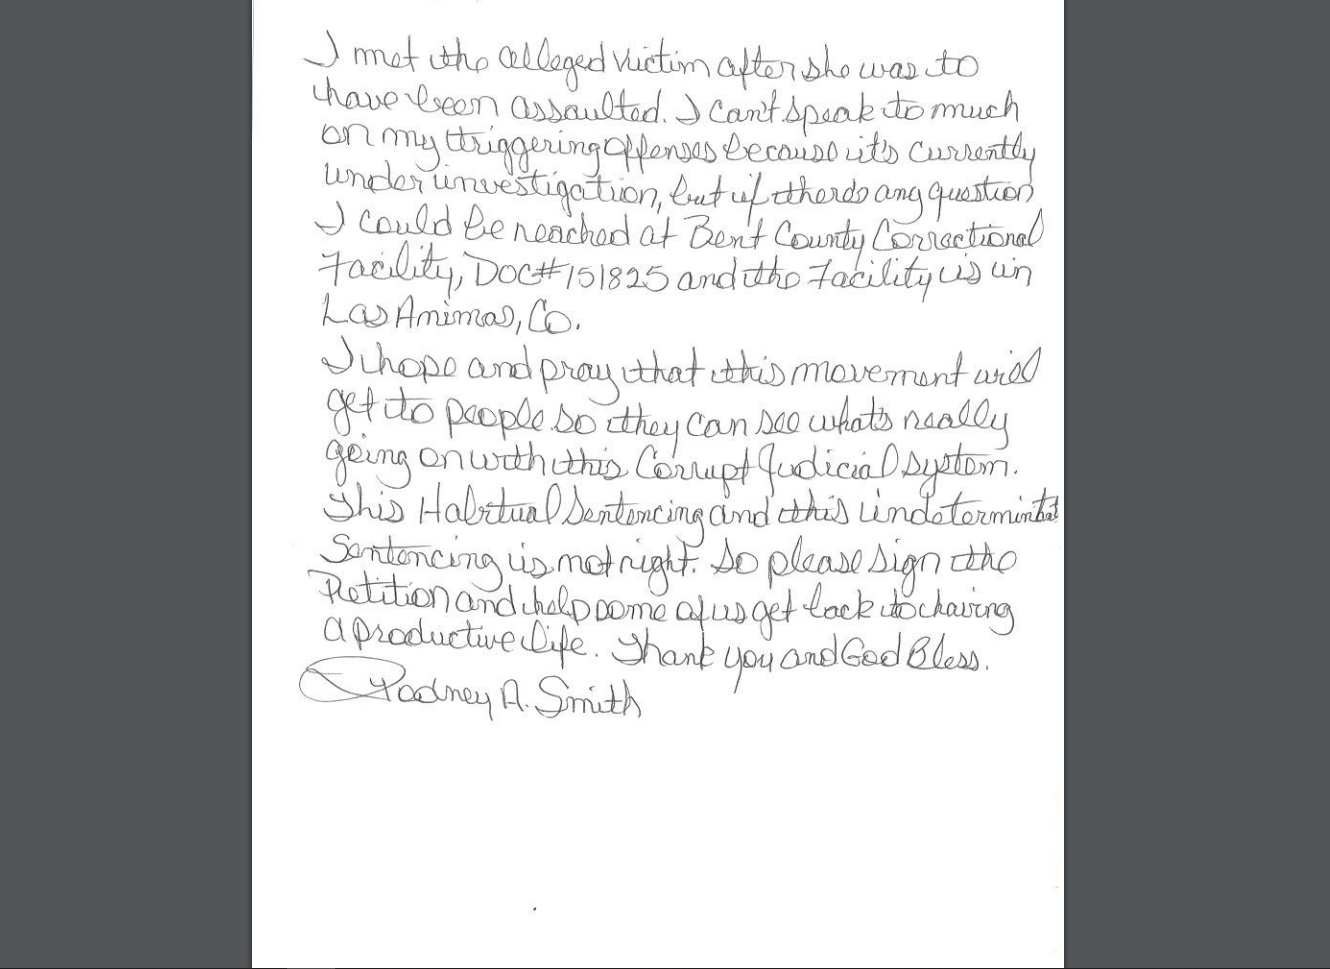 I met the alleged victim after she was to
have been assaulted. I can't speak to much
on my triggering offenses because it's currently
under investigation, but if there's any question
I could be reached at Bent County Correctional
Facility, DOC#151825 and the Facility is in
Las Animas, Co.
I hope and pray that this movement will
get to people so they can see what's really
going on with this Corrupt Judicial system.
This Habitual Sentencing and this indeterminate
Sentencing is not right. So please sign the
Petition and help some of us get back to having
a productive life. Thank you and God Bless.
Rodney A. Smith